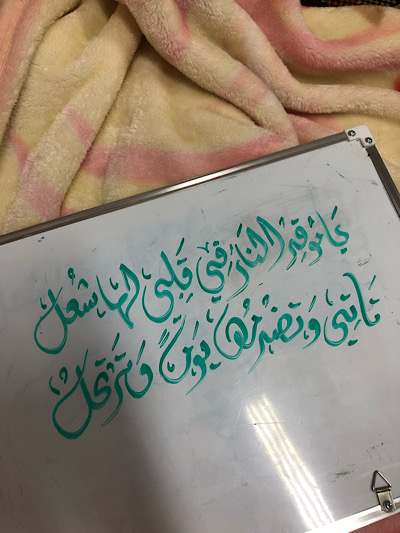 ياموقد النار في قلبي لها شعل
تأتي وتضرمها يوماً وترتحل